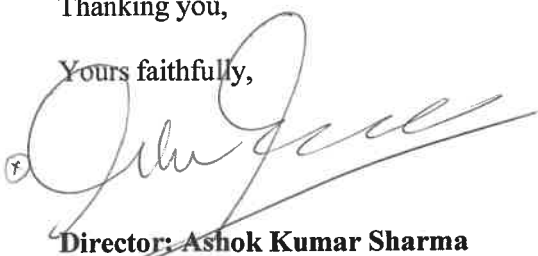 Thanking you,
Yours faithfully,
Director: Ashok Kumar Sharma